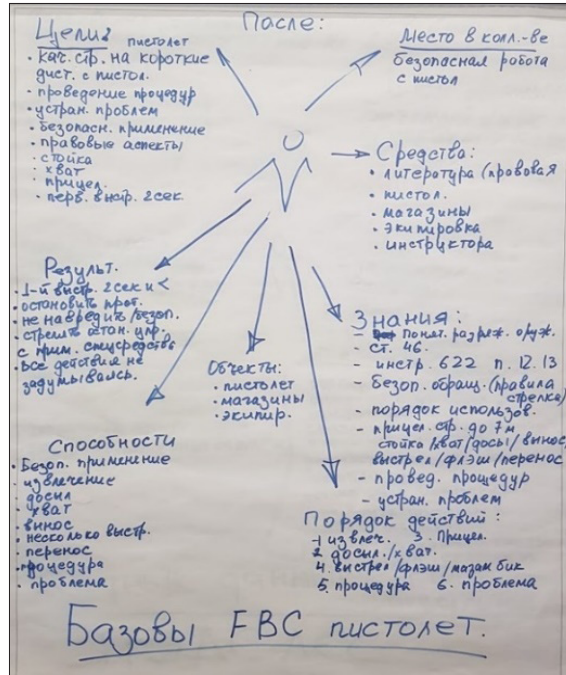 После:
Цели:
пистолет
• кач. стр. на короткие
дист. с пистол.
• проведение процедур
• устран. проблем
• безопасн. применение
• правовые аспекты
• стойка
• хват
• прицел.
• перв. выстр. 2сек.
Место в колл.-ве
безопасная работа
с пистол
→ Средства:
• литература (правовая
• пистол.
• магазины
• экипировка
• инструктора
Результ.
• 1-й выстр. 2сек и <
• остановить прот.
• не навредить/безоп.
с прим. спецсредств
• все действия не
задумываясь.
Объекты:
• пистолет
• магазины
• экипир.
Знания:
- понят. разряж. оруж.
- ст. 46.
- инстр. 622 п. 12.13
- безоп. обращ. (правила
стрелка)
- порядок использов.
- прицел. стр. до 7м
стойка/хват/досы/вынос/
выстрел/флэш/перенос
- провед. процедур
- устран. проблем
Способности
• Безоп. применение
• извлечение
• досыл
• хват
• вынос
• несколько выстр.
• перенос
• процедура
• проблема
Порядок действий:
1 извлеч. 3. Прицел.
2 досыл./хват.
4. выстрел/флэш/мазамбик
5. процедура 6. проблема
Базовы FBC пистолет.